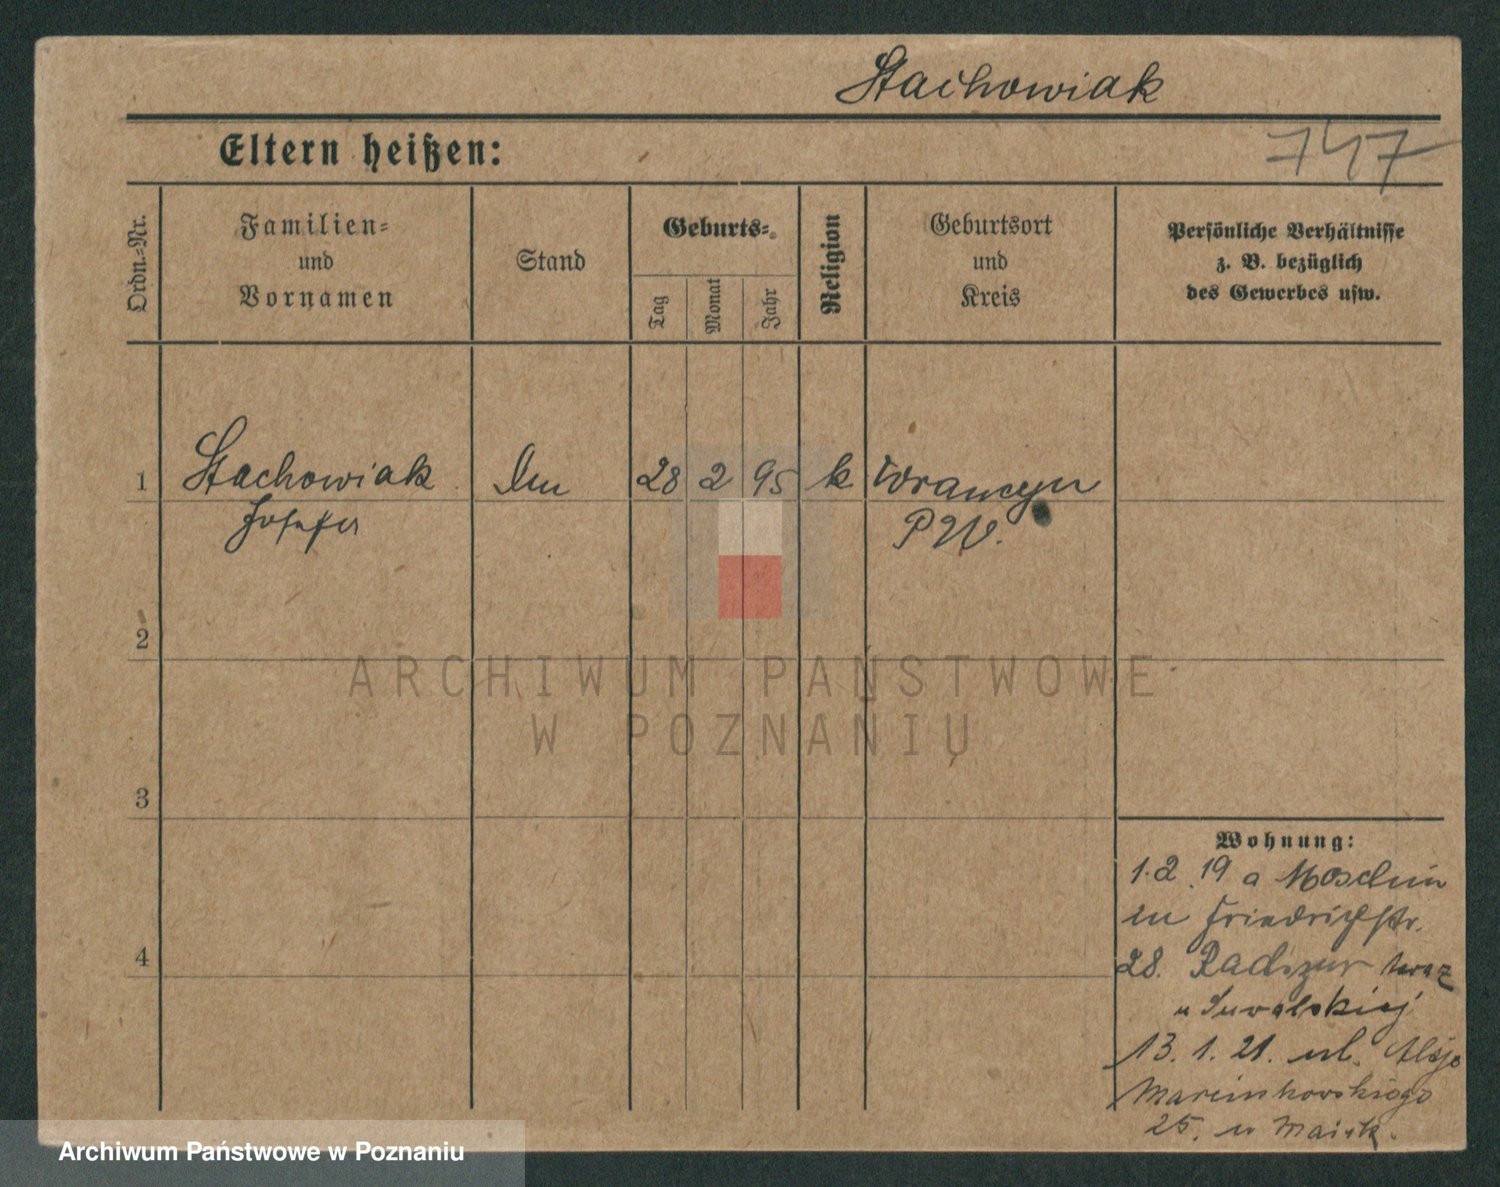 Stachowiak
Eltern heißen:
747
Ordn.-Nr.
Familien-
und
Vornamen
Stand
Geburts-
Tag
Monat
Jahr
Religion
Geburtsort
und
Kreis
Persönliche Verhältnisse
z. B. bezüglich
des Gewerbes usw.
1
Stachowiak
Josefa
28 2 95
k
PW.
2
ARCHIWUM PAŃSTWOWE
W POZNANIU
3
4
Wohnung:
1.2.19 a Moschin
in Friedrichstr.
28. teraz
u Suwalskiej
13. 1. 21. ul. Aleje
Marcinkowskiego
25. u
Archiwum Państwowe w Poznaniu